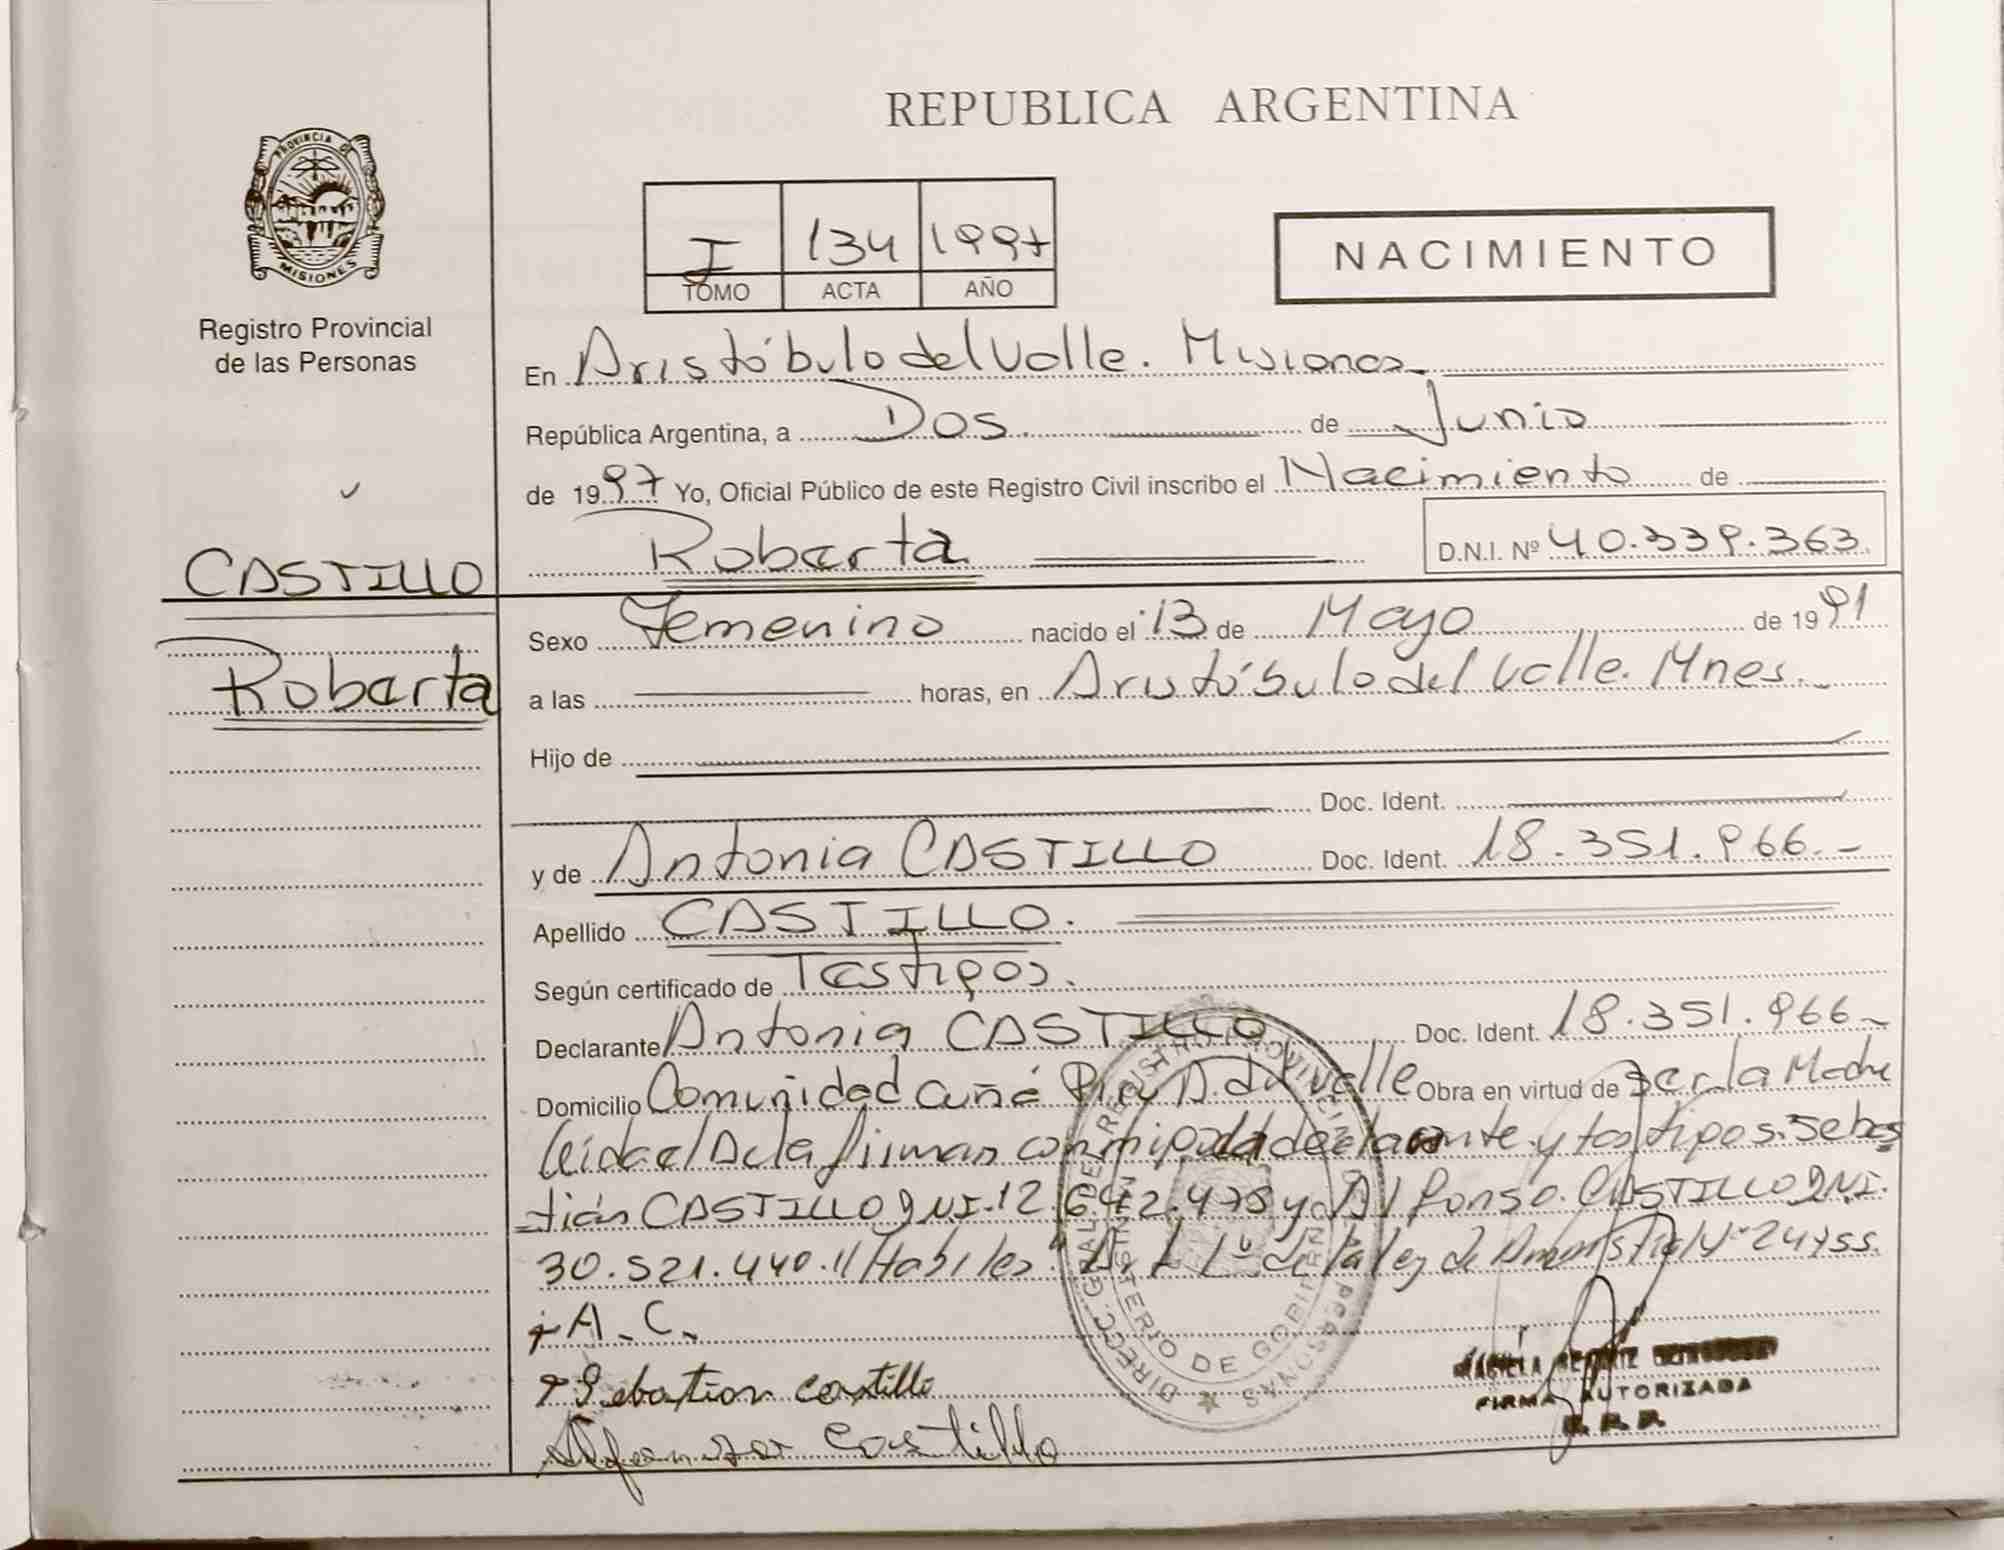 REPUBLICA ARGENTINA
PROVINCIA DE
MISIONES
Registro Provincial
de las Personas
I 134 1997
TOMO ACTA AÑO
NACIMIENTO
En Aristóbulo del Valle. Misiones.
República Argentina, a Dos. de Junio
de 1997 Yo, Oficial Público de este Registro Civil inscribo el Nacimiento de
Roberta D.N.I. Nº 40.339.363.
CASTILLO
Roberta
Sexo Femenino nacido el 13 de Mayo de 1991
a las horas, en Aristóbulo del Valle. Mnes.
Hijo de
Doc. Ident.
y de Antonia CASTILLO Doc. Ident. 18.351.966.-
Apellido CASTILLO.
Según certificado de Testigos.
Declarante Antonia CASTILLO Doc. Ident. 18.351.966-
Domicilio Comunidad Cuñá Pirú A. del Valle Obra en virtud de Ser la Madre
leída el Acta firman conmigo la declarante y testigos. Sebas
tián CASTILLO DNI. 12.642.478 y Alfonso. CASTILLO DNI.
30.521.440. Habiles Art 1º de la ley de Amnistia Nº 24
A. C.
Sebation Castillo
Castillo
DIRECC. GRAL DE REGISTRO PROVINCIAL PERSONAS
MINISTERIO DE GOBIERNO
FIRMA AUTORIZADA